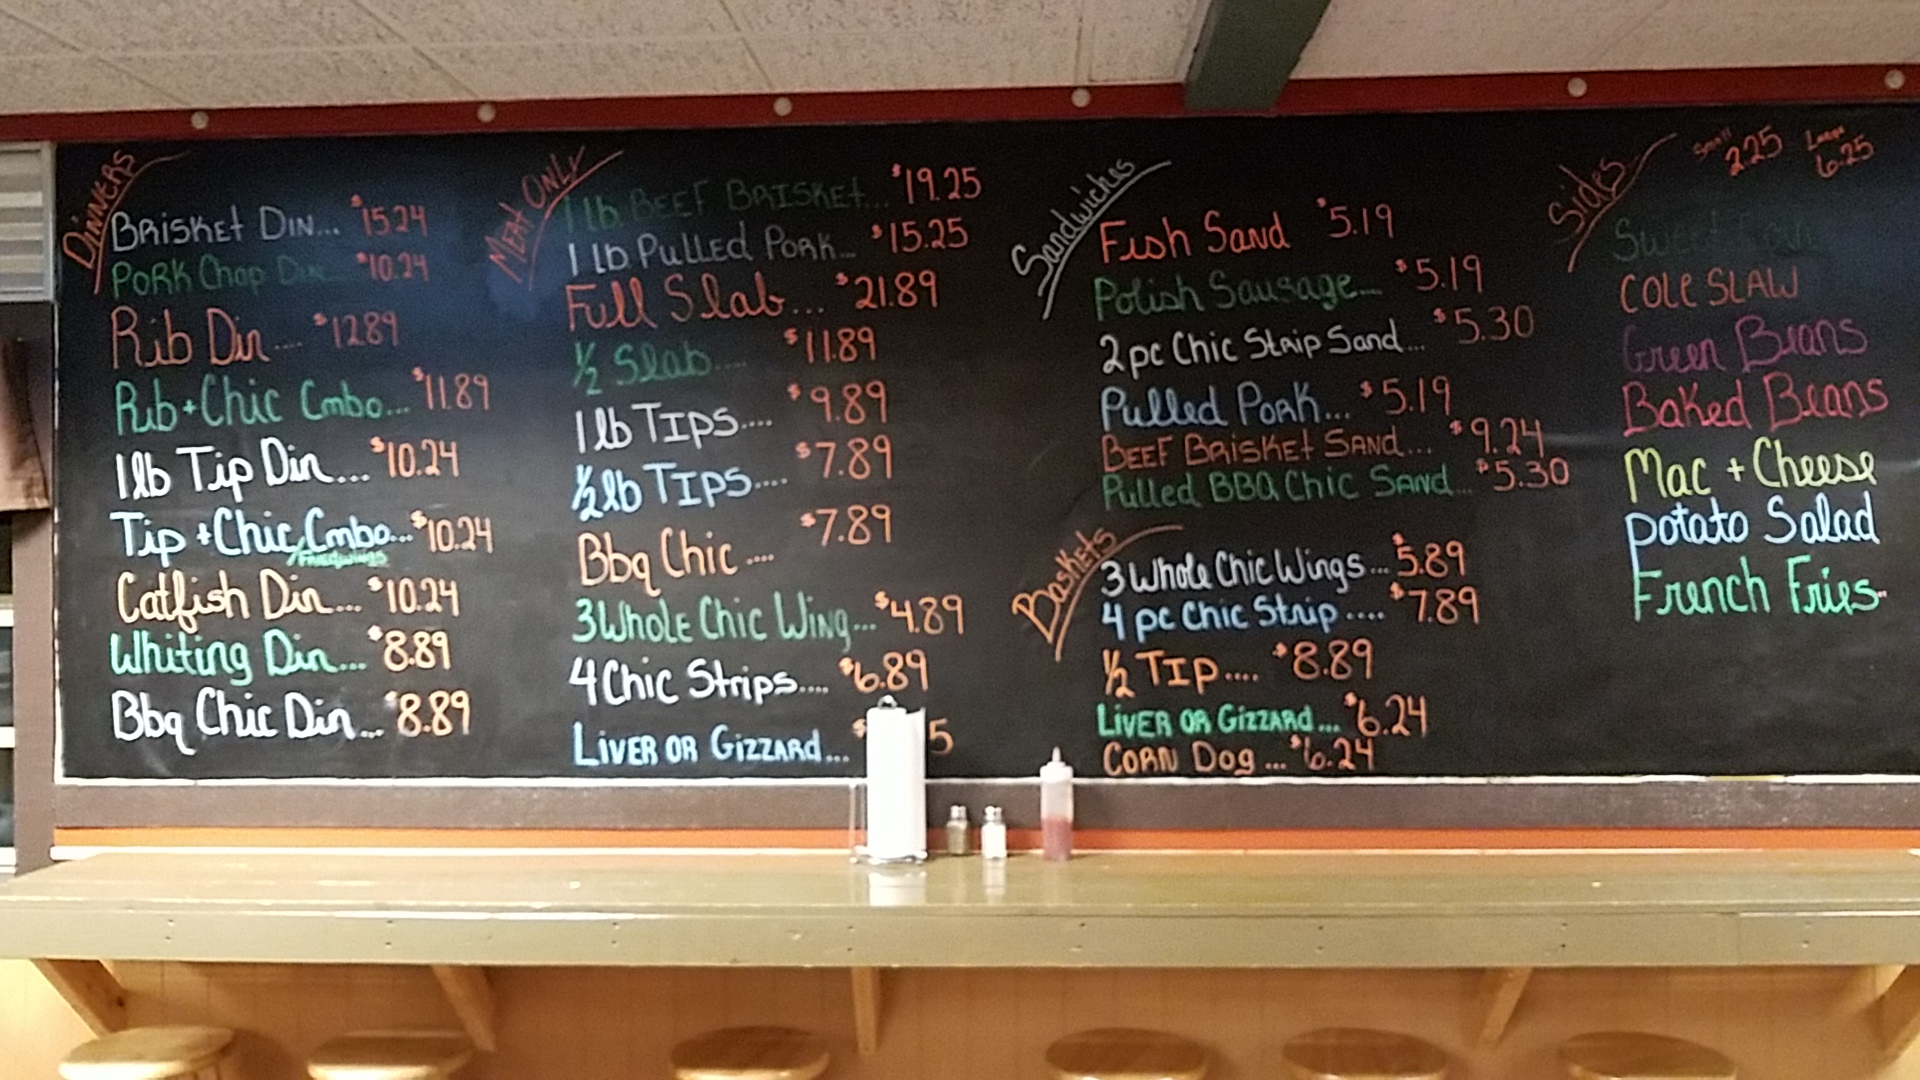 DINNERS
BRISKET DIN... $15.24
PORK Chop Din... $10.24
Rib Din.... $12.89
Rib+Chic Cmbo... $11.89
1lb Tip Din... $10.24
Tip+Chic Cmbo... $10.24
Catfish Din.... $10.24
Whiting Din.... $8.89
Bbq Chic Din... $8.89
MEAT ONLY
1 lb BEEF BRISKET... $19.25
1 lb Pulled PORK... $15.25
Full Slab... $21.89
1/2 Slab.... $11.89
1 lb TIPS.... $9.89
1/2 lb TIPS.... $7.89
Bbq Chic .... $7.89
3 Whole Chic Wing... $4.89
4 Chic Strips.... $6.89
LIVER OR GIZZARD... $ 5
Sandwiches
Fish Sand $5.19
Polish Sausage... $5.19
2 pc Chic Strip Sand... $5.30
Pulled PORK... $5.19
BEEF BRISKET SAND... $9.24
Pulled BBQ Chic SAND... $5.30
Baskets
3 Whole Chic Wings... $5.89
4 pc Chic Strip .... $7.89
1/2 TIP.... $8.89
LIVER OR GIZZARD... $6.24
CORN Dog ... $6.24
Sides
Small 2.25 Large 6.25
Sweet
COLE SLAW
Green Beans
Baked Beans
Mac + Cheese
Potato Salad
French Fries